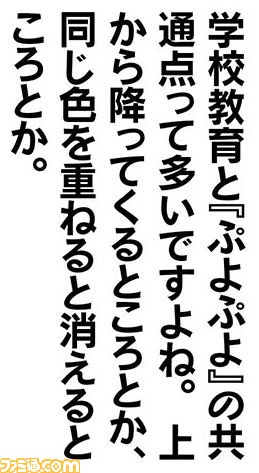 学校教育と『ぷよぷよ』の共
通点って多いですよね。 上
から降ってくるところとか、
同じ色を重ねると消えると
ころとか。
ファミ通.com